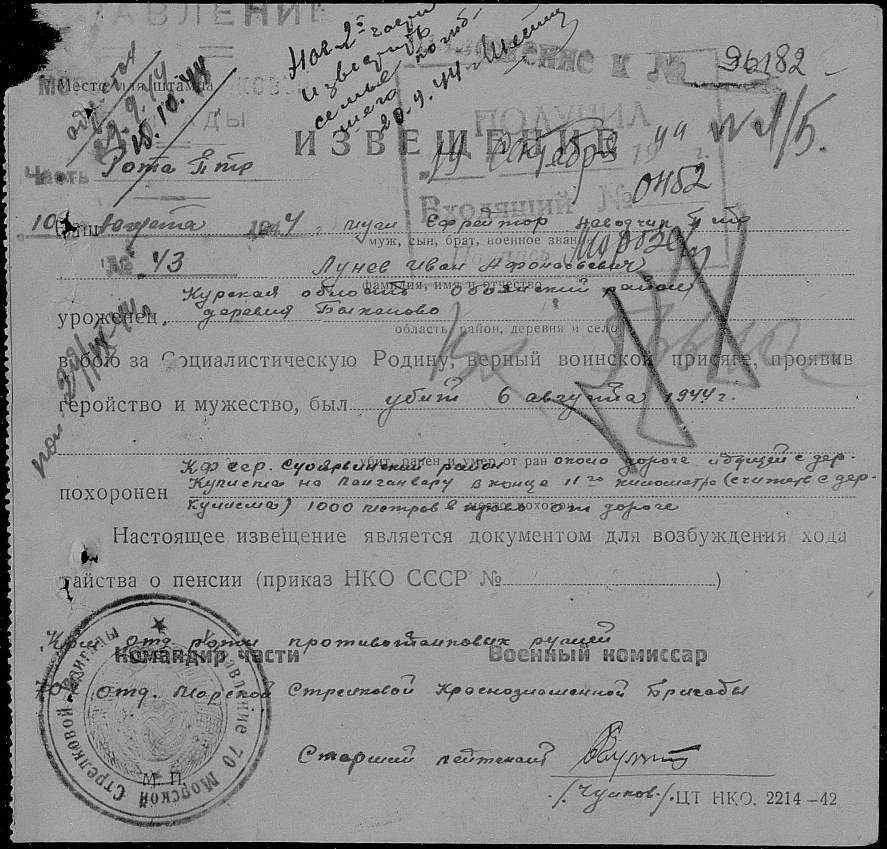 АВЛЕНИЕ
Ненс к № 96182
Нач 2й части
известить
семью погиб-
шего
20.9.44 г.
Место для штампа
22.9.44
10.10.44
ПОЛУЧИЛ
ИЗВЕЩЕНИЕ
№ 1/5.
"19" октября 1944 г.
Часть Рота птр
Входящий № 0482
10 августа 1944
муж Ефрейтор наводчик птр
муж, сын, брат, военное звание
№ 43
Лунев Иван Афонасьевич
фамилия, имя и отчество
уроженец Курская область Обоянский район
деревня Быканово
область, район, деревня и село
в бою за Социалистическую Родину, верный воинской присяге, проявив
геройство и мужество, был убит 6 августа 1944 г.
убит, ранен и умер от ран
КФ сср. Суоярвинский район около дороге идущей с дер.
похоронен Куписма на Лонгонвару в конце 11го километра (считать с дер.
Куписма) 1000 метров в право от дороге
Настоящее извещение является документом для возбуждения хода
тайства о пенсии (приказ НКО СССР № )
Ком. отд. роты противотанковых ружей
Командир части Военный комиссар
70 отд. Морской Стрелковой Краснознаменной Бригады
Старший лейтенант
/Чумков/
М. П.
ЦТ НКО. 2214-42
Управление 70 Морской Стрелковой Бригады